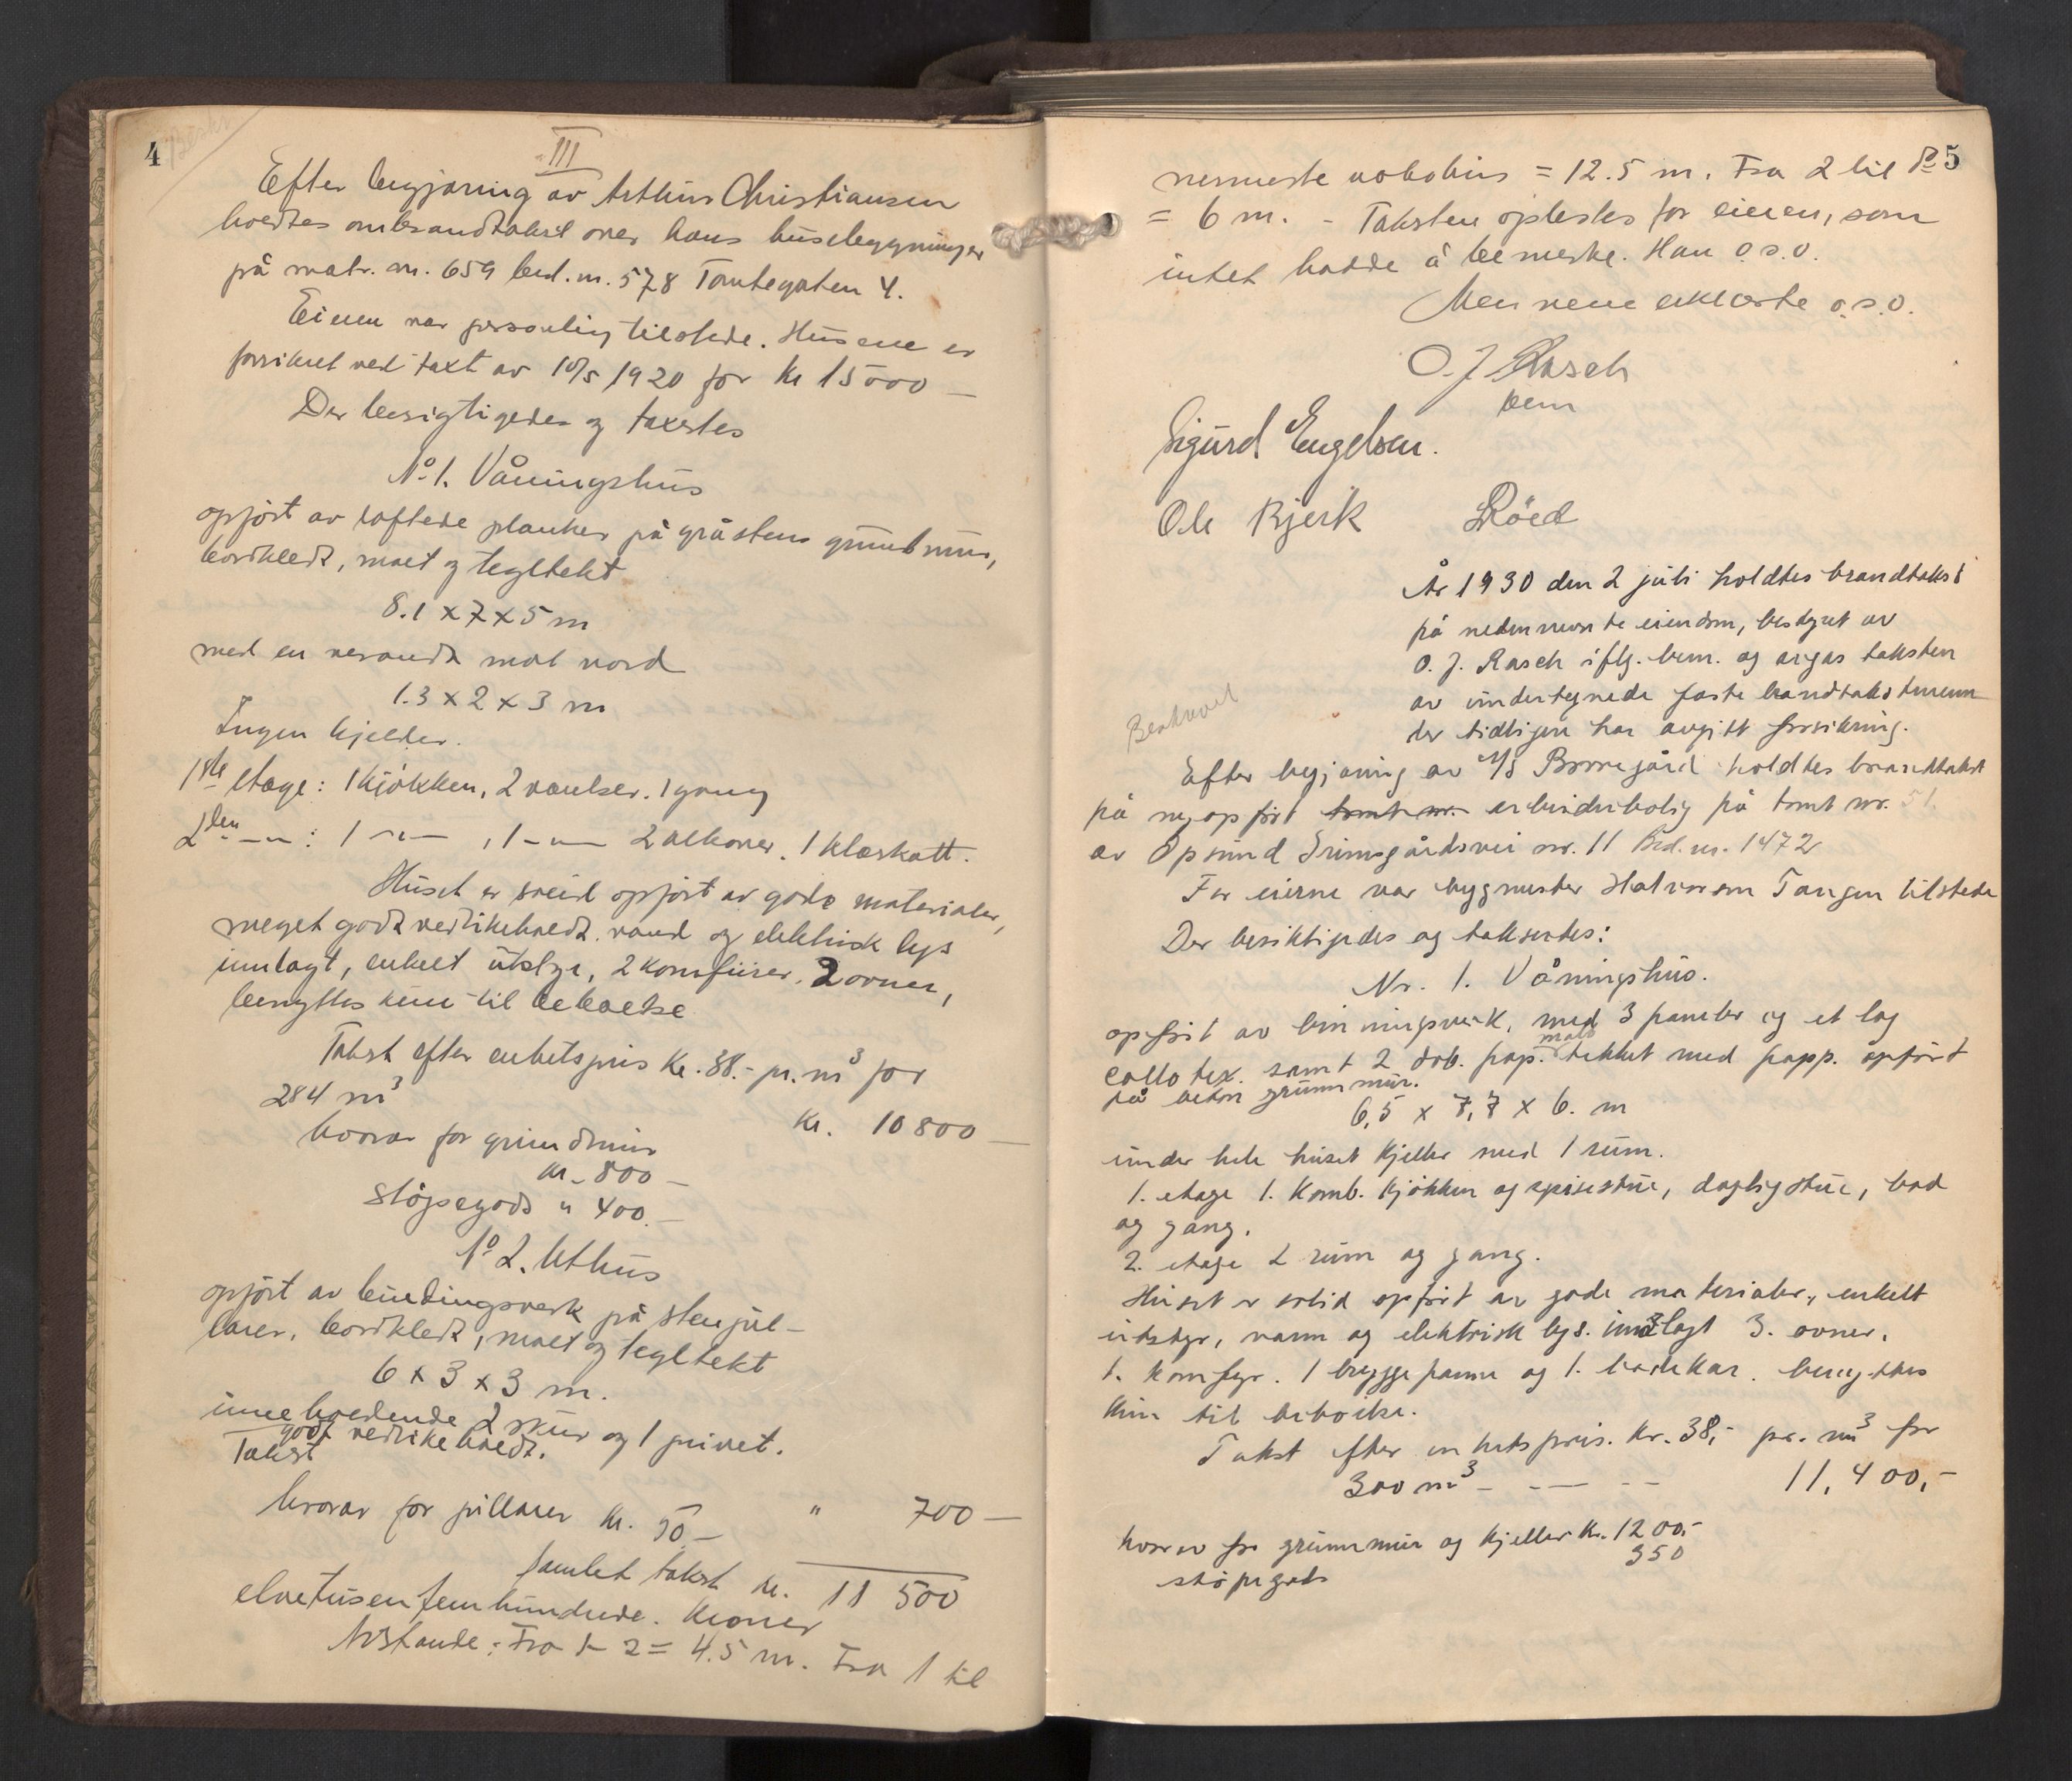 4
III
Efter begjæring av Arthur Christiansen
holdtes ombrandtakst over hans husebygninger
på matr. nr. 659 brd. nr. 578 Tomtegaten 4.
Eieren var personlig tilstede. Husene er
forsikret ved taxt av 10/5 1920 for Kr 15000 —
Der besigtigedes og taxertes
No 1. Våningshus
opført av laftede planker på gråstens grundmur,
bordkledt, malt og tegltekt
8.1 x 7 x 5 m
med en veranda mot nord
1.3 x 2 x 3 m
Ingen kjelder.
1ste etage: 1 kjøkken, 2 værelser. 1 gang
2den — " — : 1 — " — , 1 — " — 2 alkover. 1 klæskott.
Huset er solid opført av gode materialer,
meget godt vedlikeholdt. vand og elektrisk lys
innlagt, enkelt utstyr, 2 komfurer. 2 ovner,
benyttes kun til beboelse
Takst efter enhetspris Kr. 38.- pr. m3 for
284 m3
Kr. 10800 —
hvorav for grundmur
Kr. 800 —
støpegods " 400. —
No 2. Uthus
opført av bindingsverk på stenpil-
larer, bordkledt, malt og tegltekt
6 x 3 x 3 m.
inneholdende 2 skur og 1 privet.
godt vedlikeholdt.
Takst
" 700 —
hvorav for pillarer Kr. 50 —
Samlet takst Kr. 11 500
elvetusenfemhundrede. Kroner
Avstande: Fra 1 - 2 = 4.5 m. Fra 1 til
5
nermeste nabohus = 12.5 m. Fra 2 til do
= 6 m. - Taksten oplestes for eieren, som
intet hadde å bemerke. Han o.s.v.
Mennene erklærte o.s.v.
O. J. Rasch
bem
Sigurd Engelsen.
Ole Bjerk Röed
År 1930 den 2 juli holdtes brandtakst
på nedennevnte eiendom, bestyret av
O. J. Rasch iflg. bem. og avgas taksten
av undertegnede faste brandtakstmenn
der tidligere har avgitt forsikring.
Efter begjæring av A/S Borregård holdtes brandtakst
på nyopført tomt nr. arbeiderbolig på tomt nr. 51.
av Opsund Grimsgårdsvei nr. 11 Brd. nr. 1472
For eierne var bygmester Halvorsen Tangen tilstede
Der besiktigedes og taksertes:
Nr. 1. Våningshus.
opført av binningsverk, med 3 paneler og et lag
cellotex. samt 2 dob. pap. malt tekket med papp. opført
på beton grunnmur.
6,5 x 7,7 x 6. m
under hele huset kjeller med 1 rum.
1. etage 1. komb. kjøkken og spisestue, dagligstue, bad
og gang.
2. etage 2 rum og gang.
Huset er solid opført av gode materialer., enkelt
utstyr, vann og elektrisk lys. innlagt 3. ovner.
1. komfyr. 1 bryggepanne og 1. badekar. benyttes
kun til beboelse.
Takst efter enhetspris. Kr. 38,- pr. m3 for
300 m3 - - — - - 11,400,-
hvorav for grunnmur og kjeller Kr. 1200.-
støpegods 350